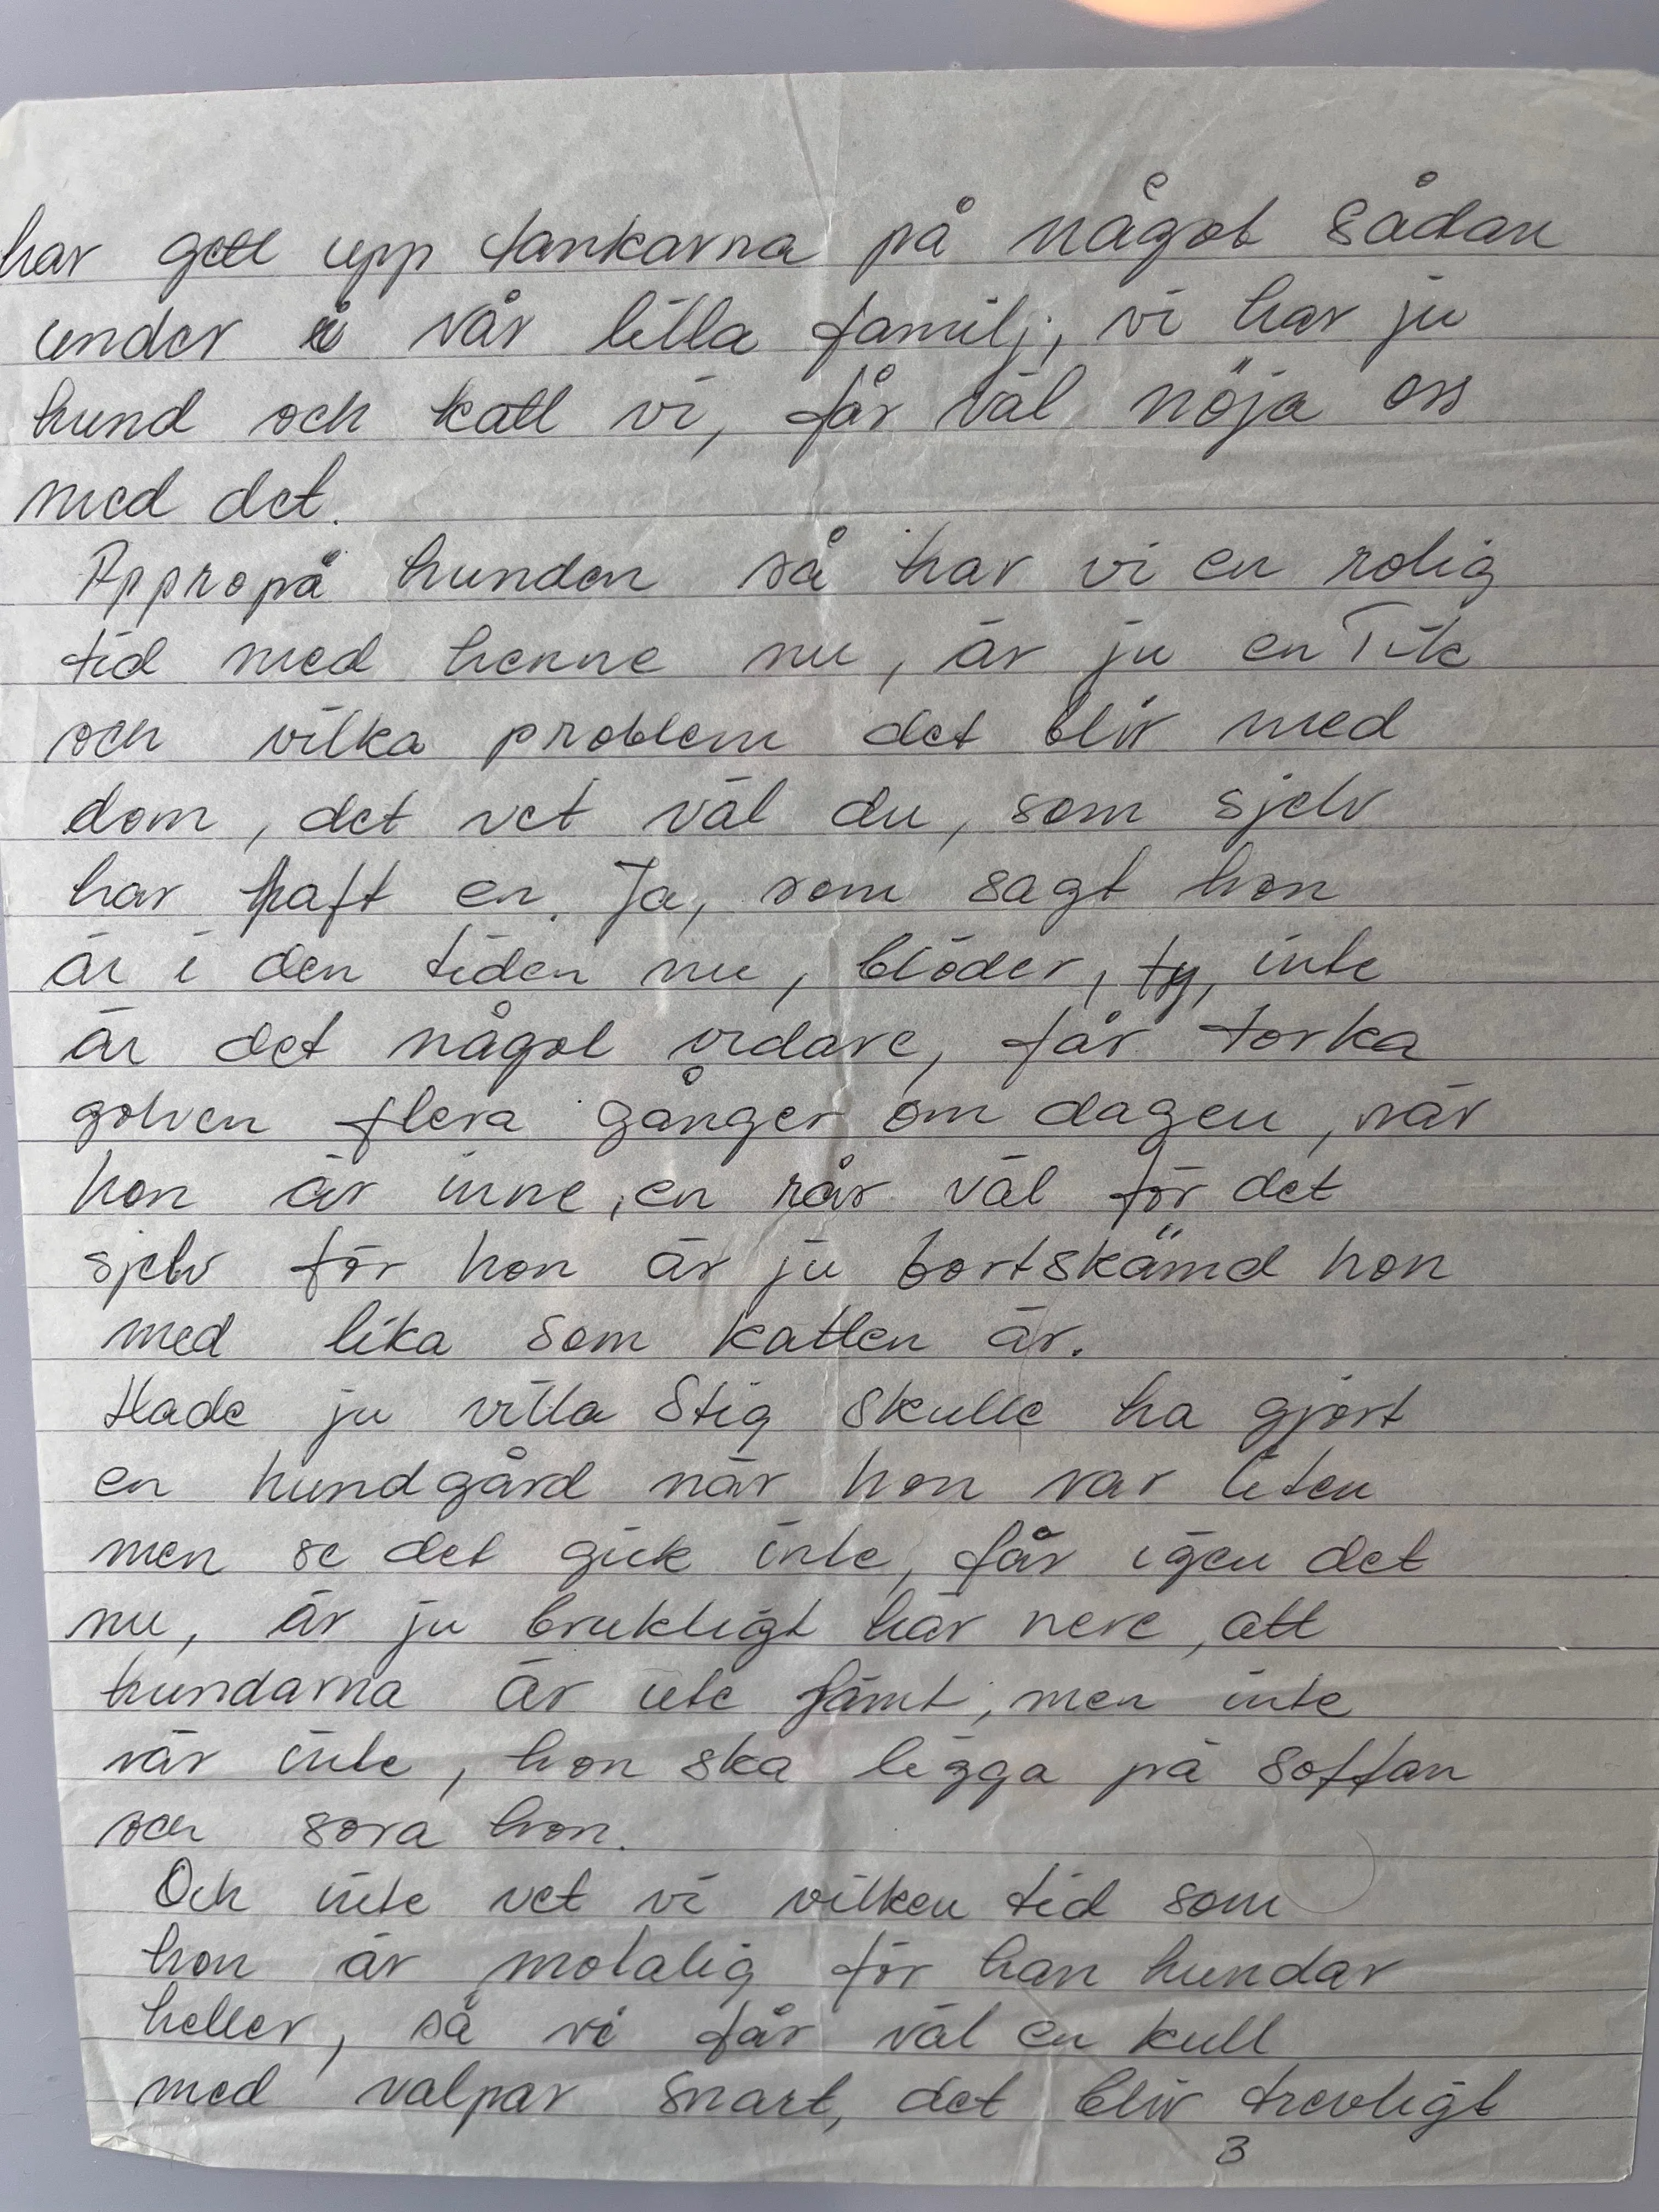 har gett upp tankarna på något sådan
under i vår lilla familj, vi har ju
hund och katt vi, får väl nöja oss
med det.
Appropå hunden så har vi en rolig
tid med henne nu, är ju en Tik
och vilka problem det blir med
dom, det vet väl du, som sjelv
har haft en. Ja, som sagt hon
är i den tiden nu, blöder, ty, inte
är det något vidare, får torka
golven flera gånger om dagen, när
hon är inne, en rår väl för det
sjelv för hon är ju bortskämd hon
med lika som katten är.
Hade ju villa Stig skulle ha gjort
en hundgård när hon var liten
men se det gick inte, får igen det
nu, är ju brukligt här nere, att
hundarna är ute jämt, men inte
vår inte, hon ska ligga på soffan
och sova hon.
Och inte vet vi vilken tid som
hon är motalig för han hundar
heller, så vi får väl en kull
med valpar snart, det blir trevligt
3